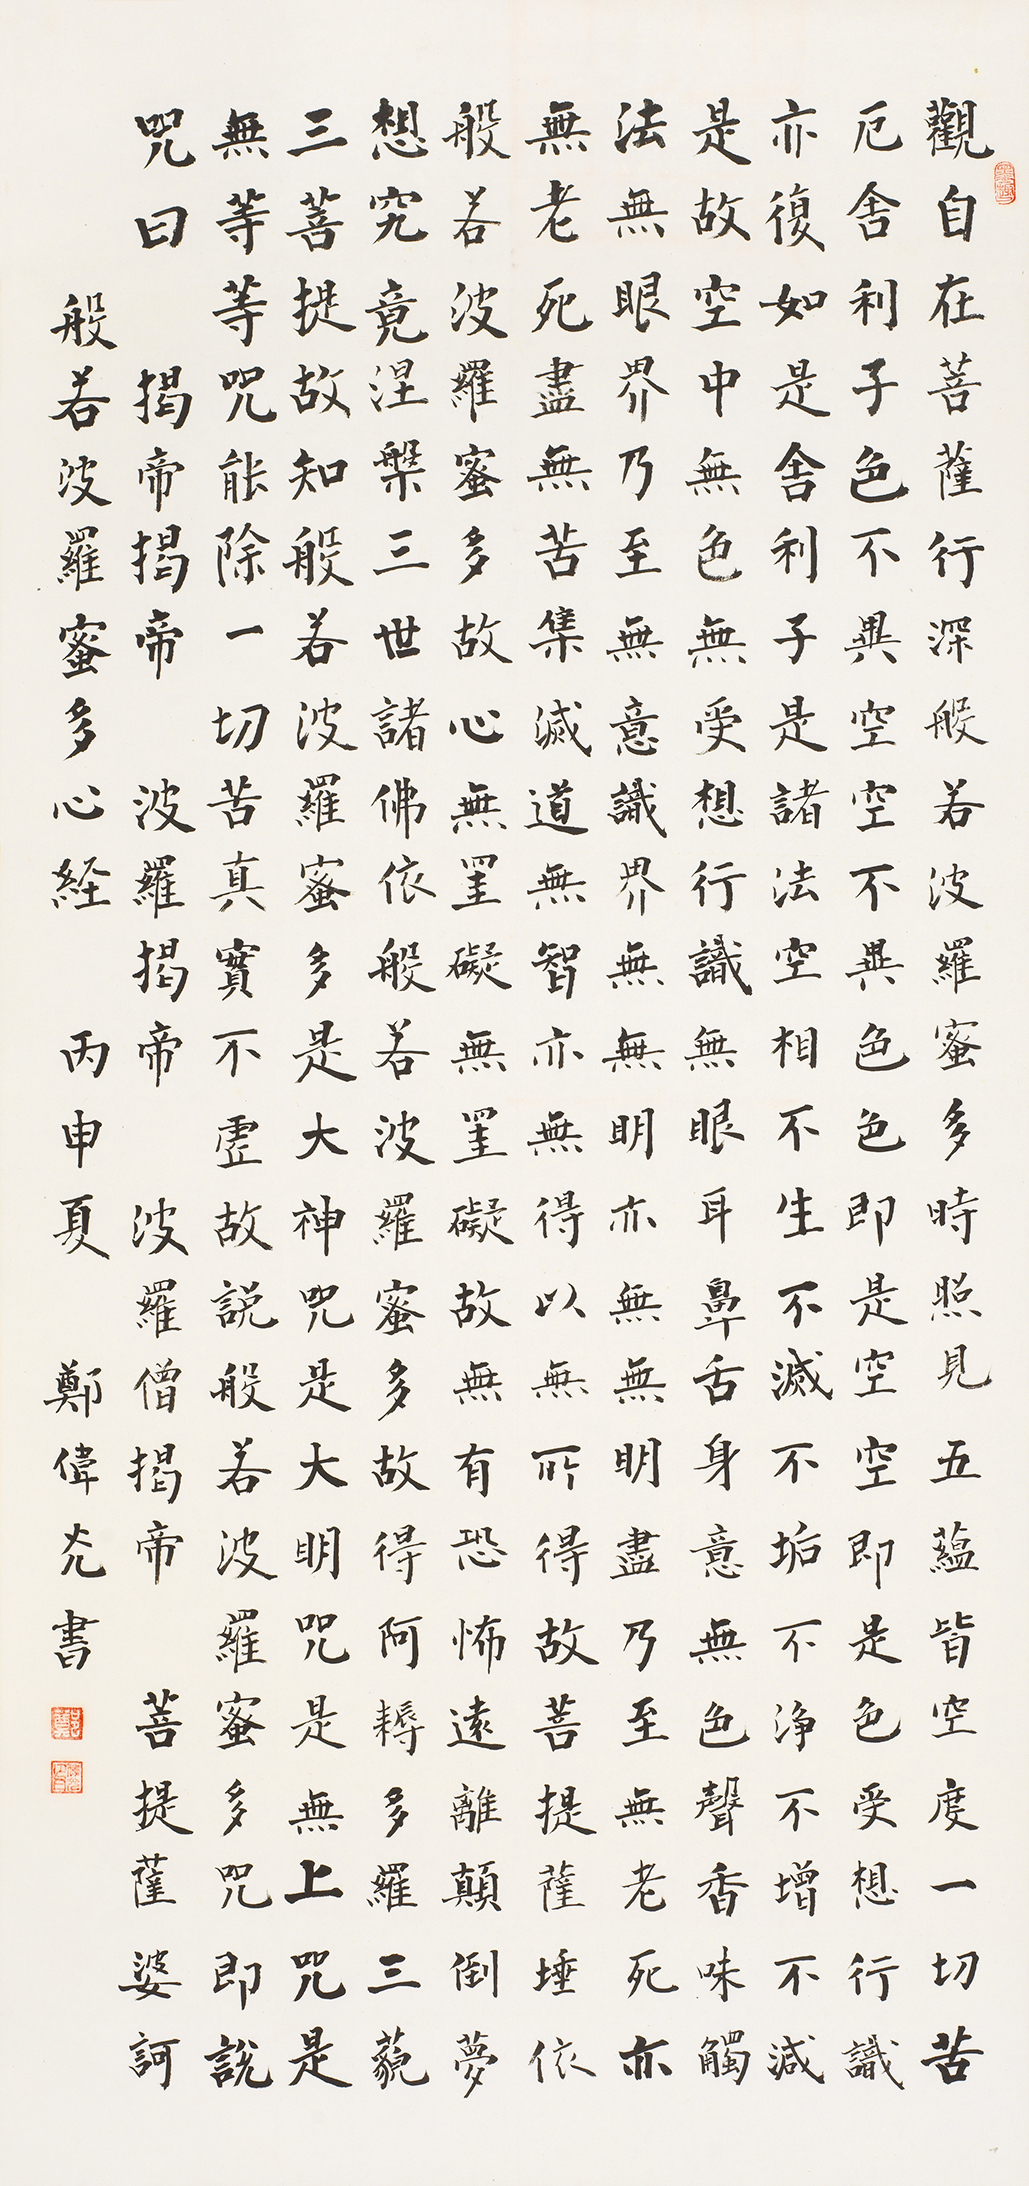 觀自在菩薩行深般若波羅蜜多時照見五蘊皆空度一切苦
厄舍利子色不異空空不異色色即是空空即是色受想行識
亦復如是舍利子是諸法空相不生不滅不垢不淨不增不減
是故空中無色無受想行識無眼耳鼻舌身意無色聲香味觸
法無眼界乃至無意識界無無明亦無無明盡乃至無老死亦
無老死盡無苦集滅道無智亦無得以無所得故菩提薩埵依
般若波羅蜜多故心無罣礙無罣礙故無有恐怖遠離顛倒夢
想究竟涅槃三世諸佛依般若波羅蜜多故得阿耨多羅三藐
三菩提故知般若波羅蜜多是大神咒是大明咒是無上咒是
無等等咒能除一切苦真實不虛故說般若波羅蜜多咒即說
咒曰 揭帝揭帝 波羅揭帝 波羅僧揭帝 菩提薩婆訶
般若波羅蜜多心経 丙申夏 鄭偉光書